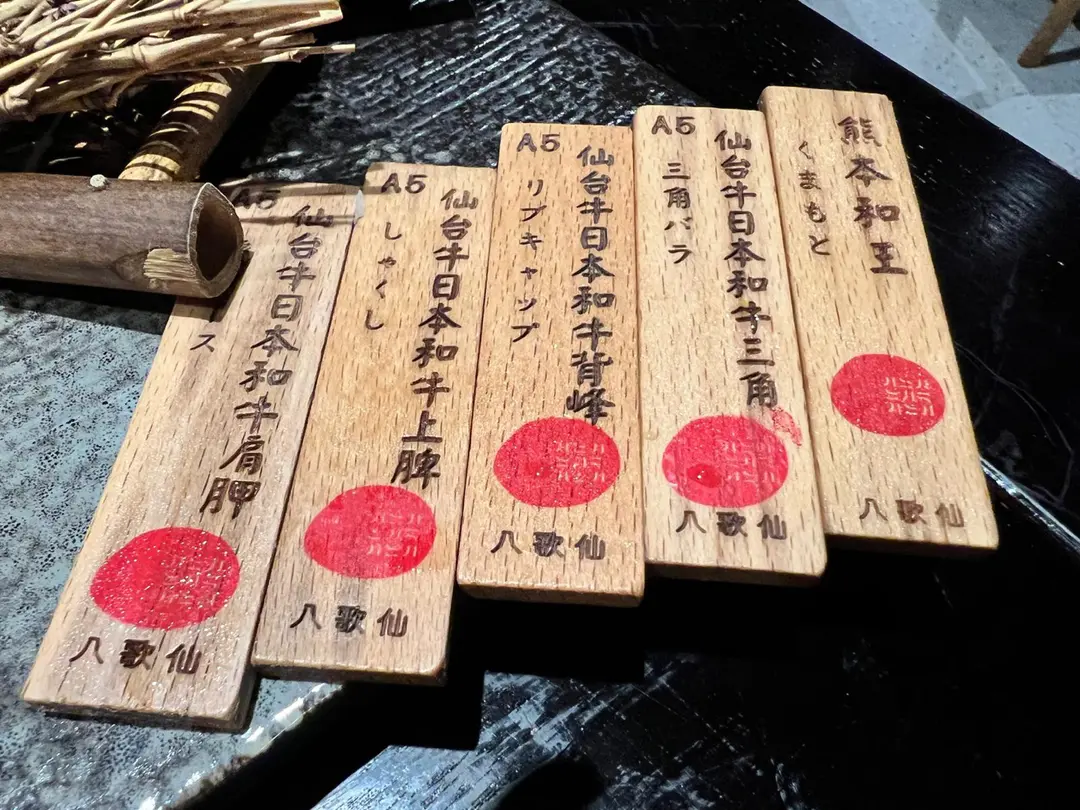 A5
仙台牛日本和牛肩胛
ス
八歌仙
A5
仙台牛日本和牛上脾
しゃくし
八歌仙
A5
仙台牛日本和牛背峰
リブキャップ
八歌仙
A5
仙台牛日本和牛三角
三角バラ
八歌仙
熊本和王
くまもと
八歌仙